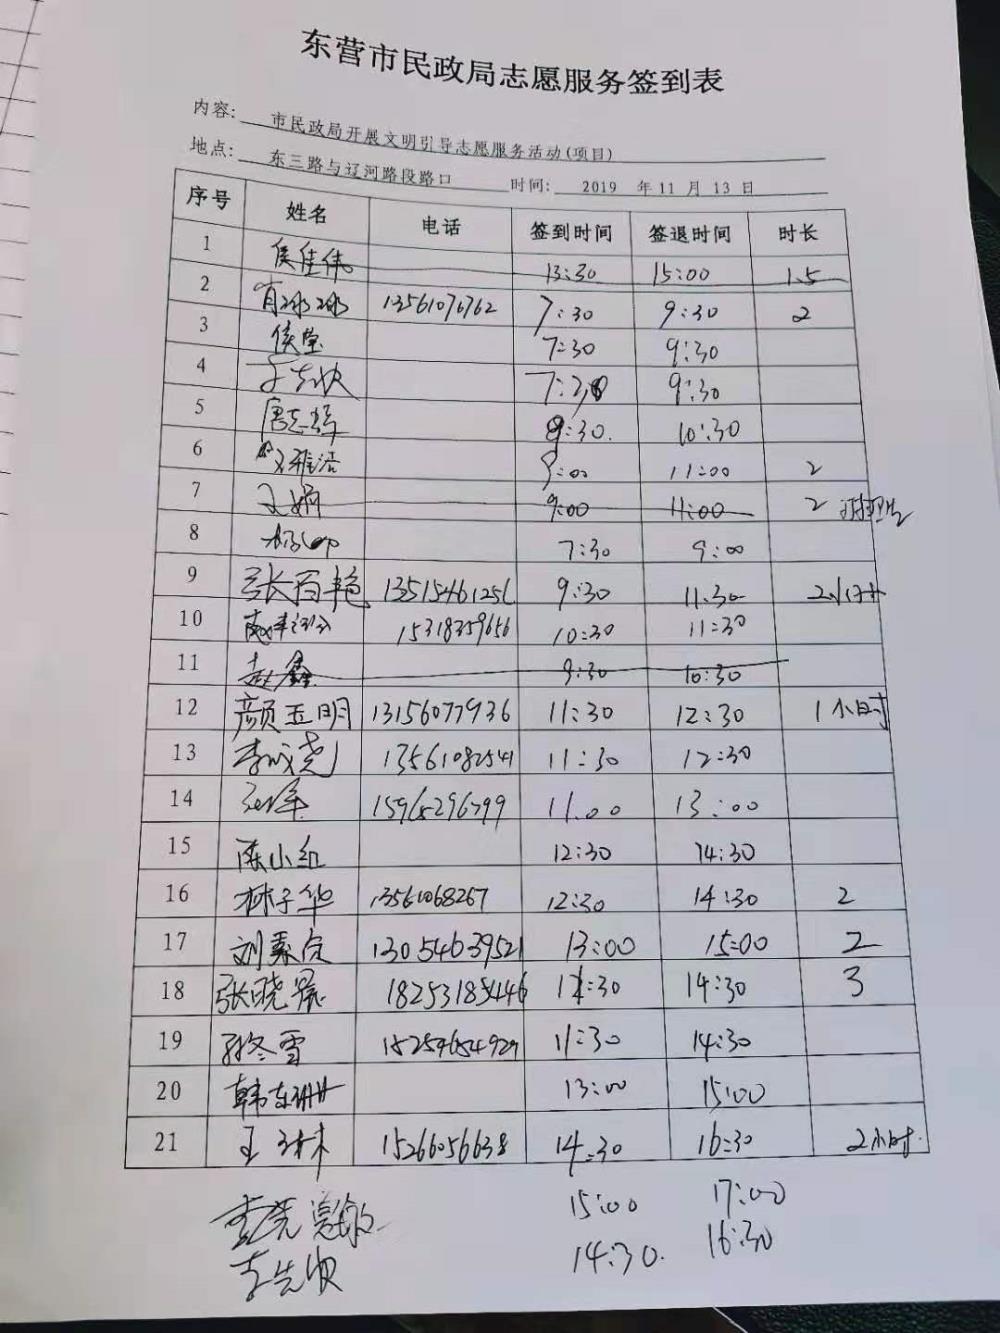 东营市民政局志愿服务签到表
内容: 市民政局开展文明引导志愿服务活动(项目)
地点: 东三路与辽河路段路口 时间: 2019 年 11 月 13 日
序号 姓名 电话 签到时间 签退时间 时长
1 侯佳伟 13:30 15:00 1.5
2 肖冰冰 13561076762 7:30 9:30 2
3 侯莹 7:30 9:30
4 9:30
5 唐志军 8:30 10:30
6 雅洁 9:00 11:00 2
7 王娟 9:00 11:00 2
8 7:30 9:00
9 张百艳 13515461256 9:30 11:30 2小时
10 15318359656 10:30 11:30
11 赵鑫 9:30 10:30
12 颜玉明 13156077936 11:30 12:30 1小时
13 李晓尧 13561082541 11:30 12:30
14 15965296799 11:00 13:00
15 陈小红 12:30 14:30
16 林子华 13561068267 12:30 14:30 2
17 刘素贞 13054639521 13:00 15:00 2
18 张晓 18253185446 11:30 14:30 3
19 孙冬雪 15259654929 11:30 14:30
20 韩东珊 13:00 15:00
21 王琳 15266056638 14:30 16:30 2小时
15:00 17:00
李先 14:30 16:30